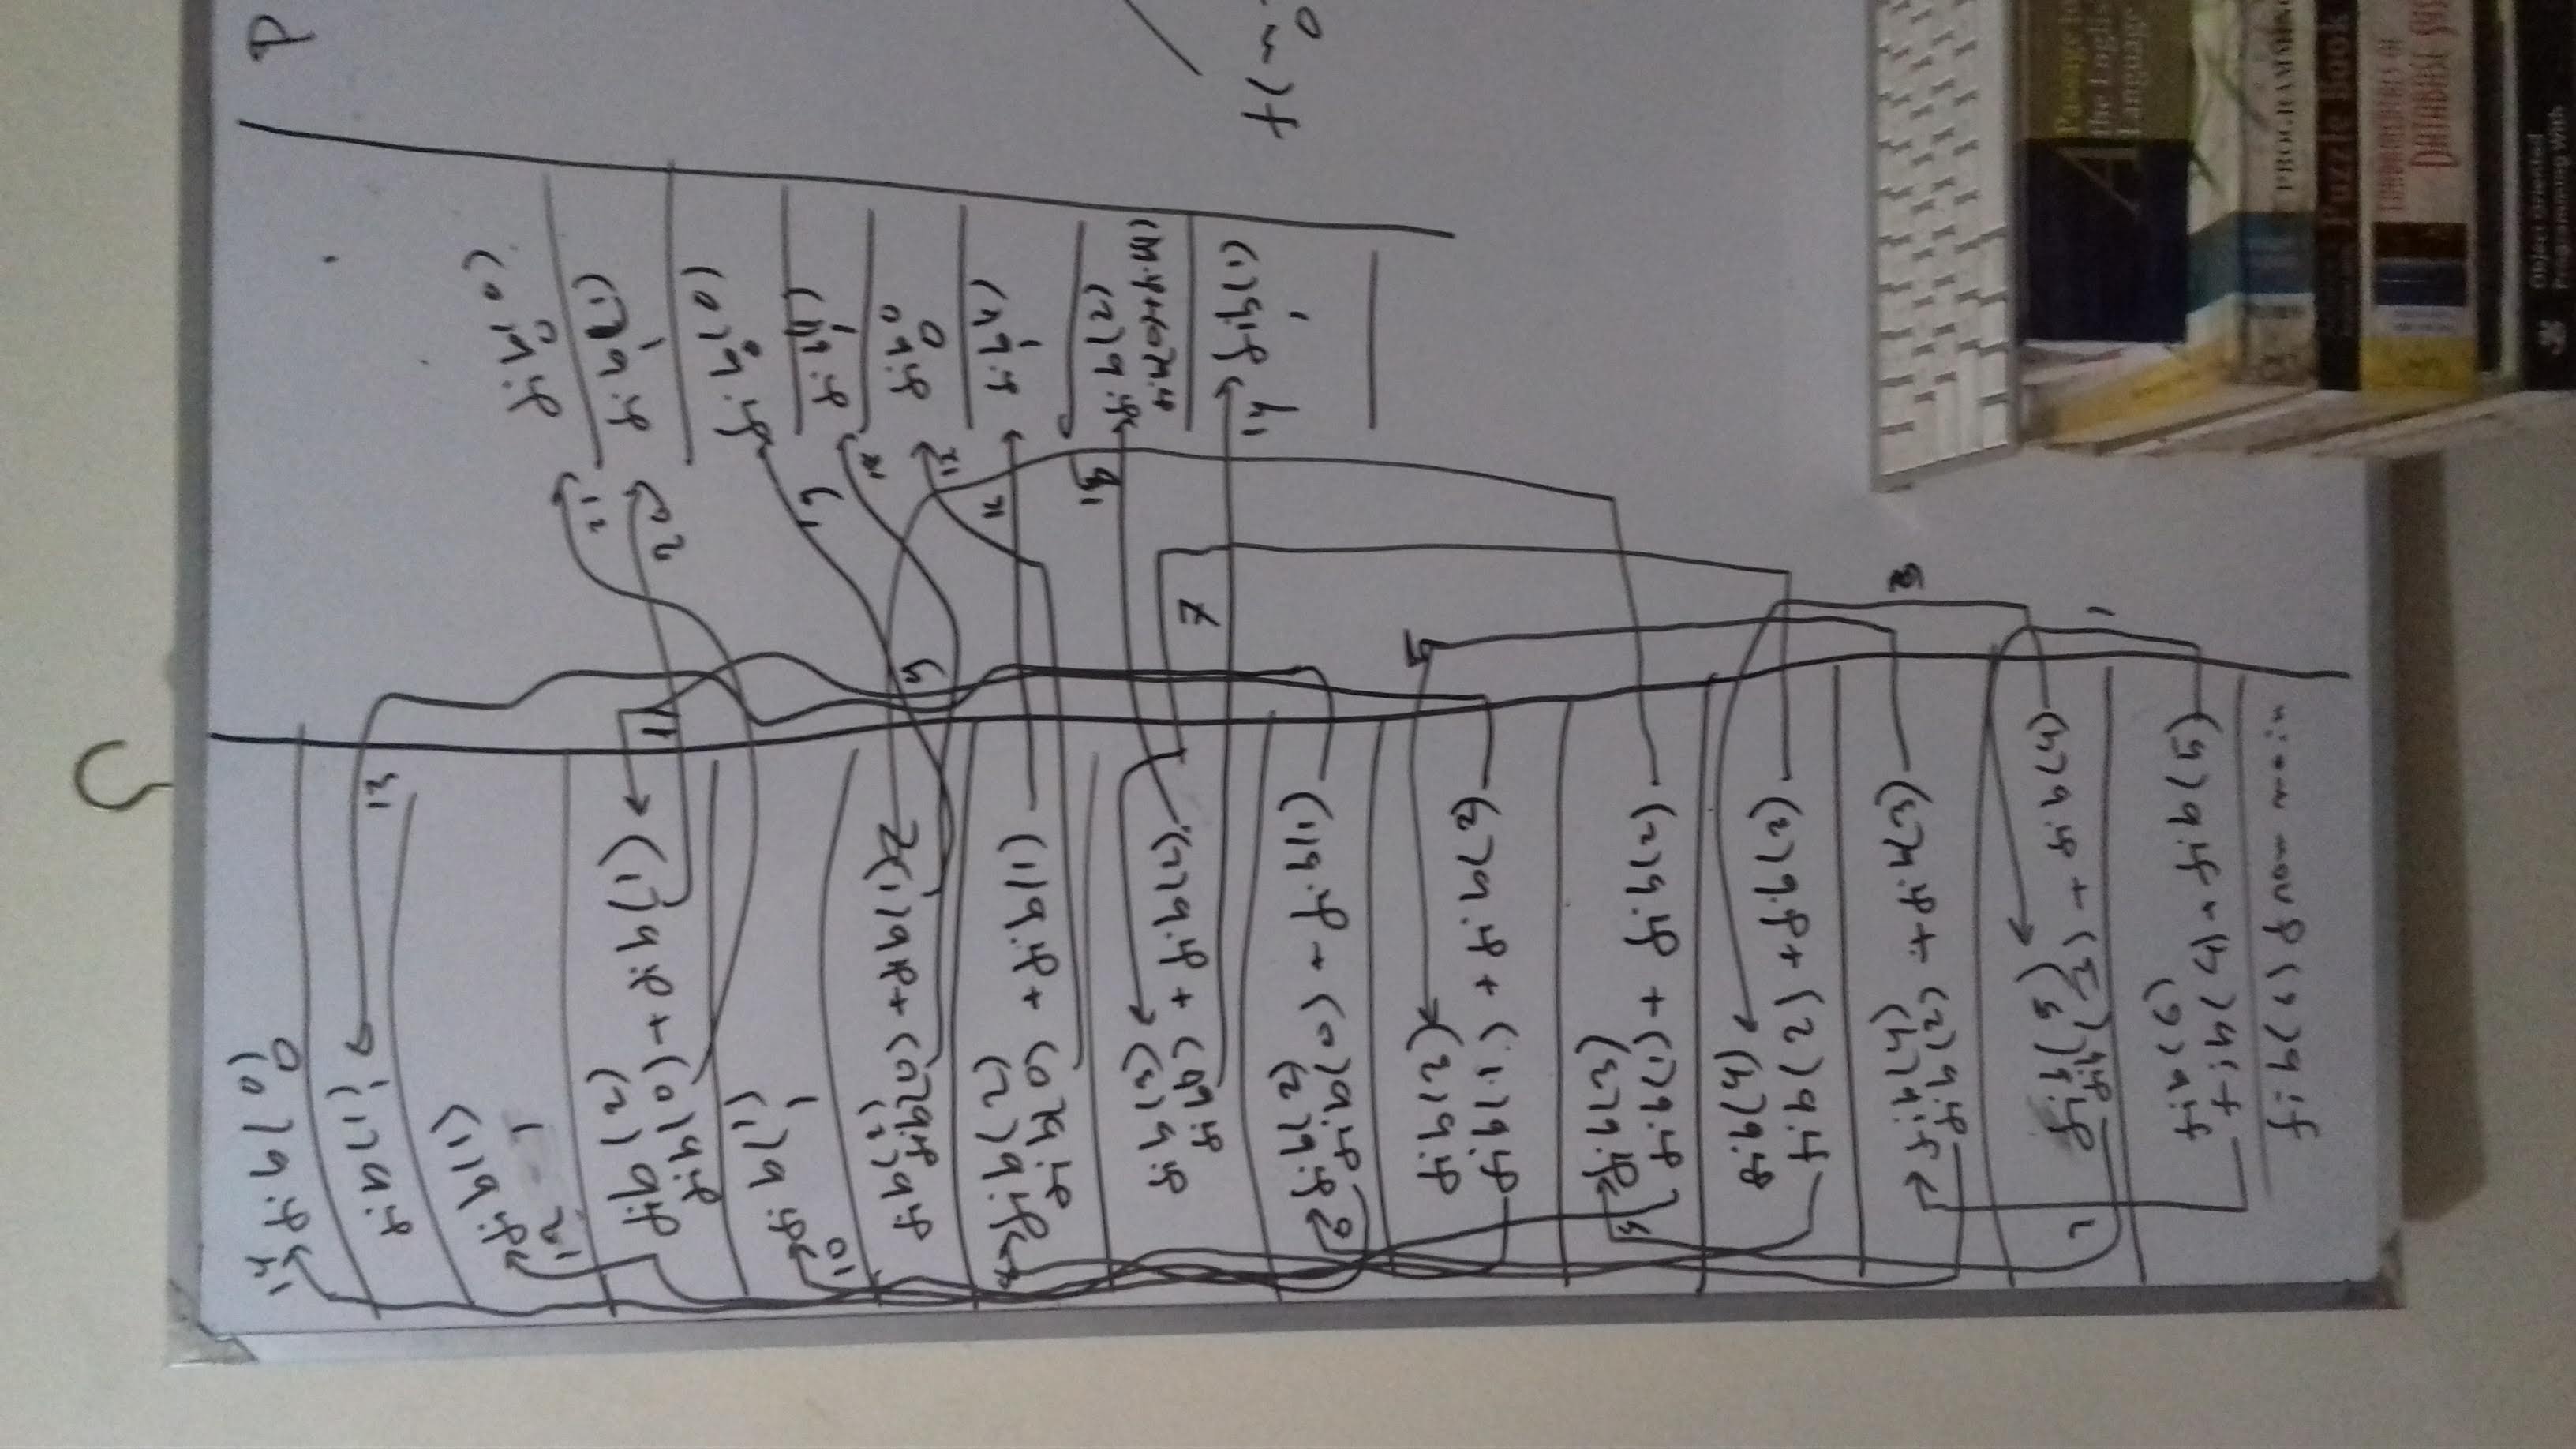 14 fib(0)
0
fib(1)
1
13
fib(1)
12 1
fib(2)
fib(0) + fib(1)
11
fib(1)
1
10
fib(2)
fib(0) + fib(1)
9
fib(2)
fib(0) + fib(1)
fib(3)
fib(1) + fib(2)
7
fib(2)
6 fib(0) + fib(1)
fib(3)
5
fib(1) + fib(2)
fib(3)
fib(1) + fib(2)
fib(4)
fib(2) + fib(3)
fib(4)
fib(2) + fib(3)
3
fib(5)
fib(3) + fib(4)
1
fib(6)
fib(4) + fib(5)
fib(6) from main
fib(0)
0
21
fib(1)
1
20
fib(0)
0
19
fib(1)
1
18
fib 0
0
fib(1)
1
16
15 fib(2)
fib(0)+fib(1)
14 fib(1)
1
P
A Passage to
the English
Language
PROGRAMMING
Puzzle Book
FUNDAMENTALS OF
DATABASE SYS
Object Oriented
Programming With